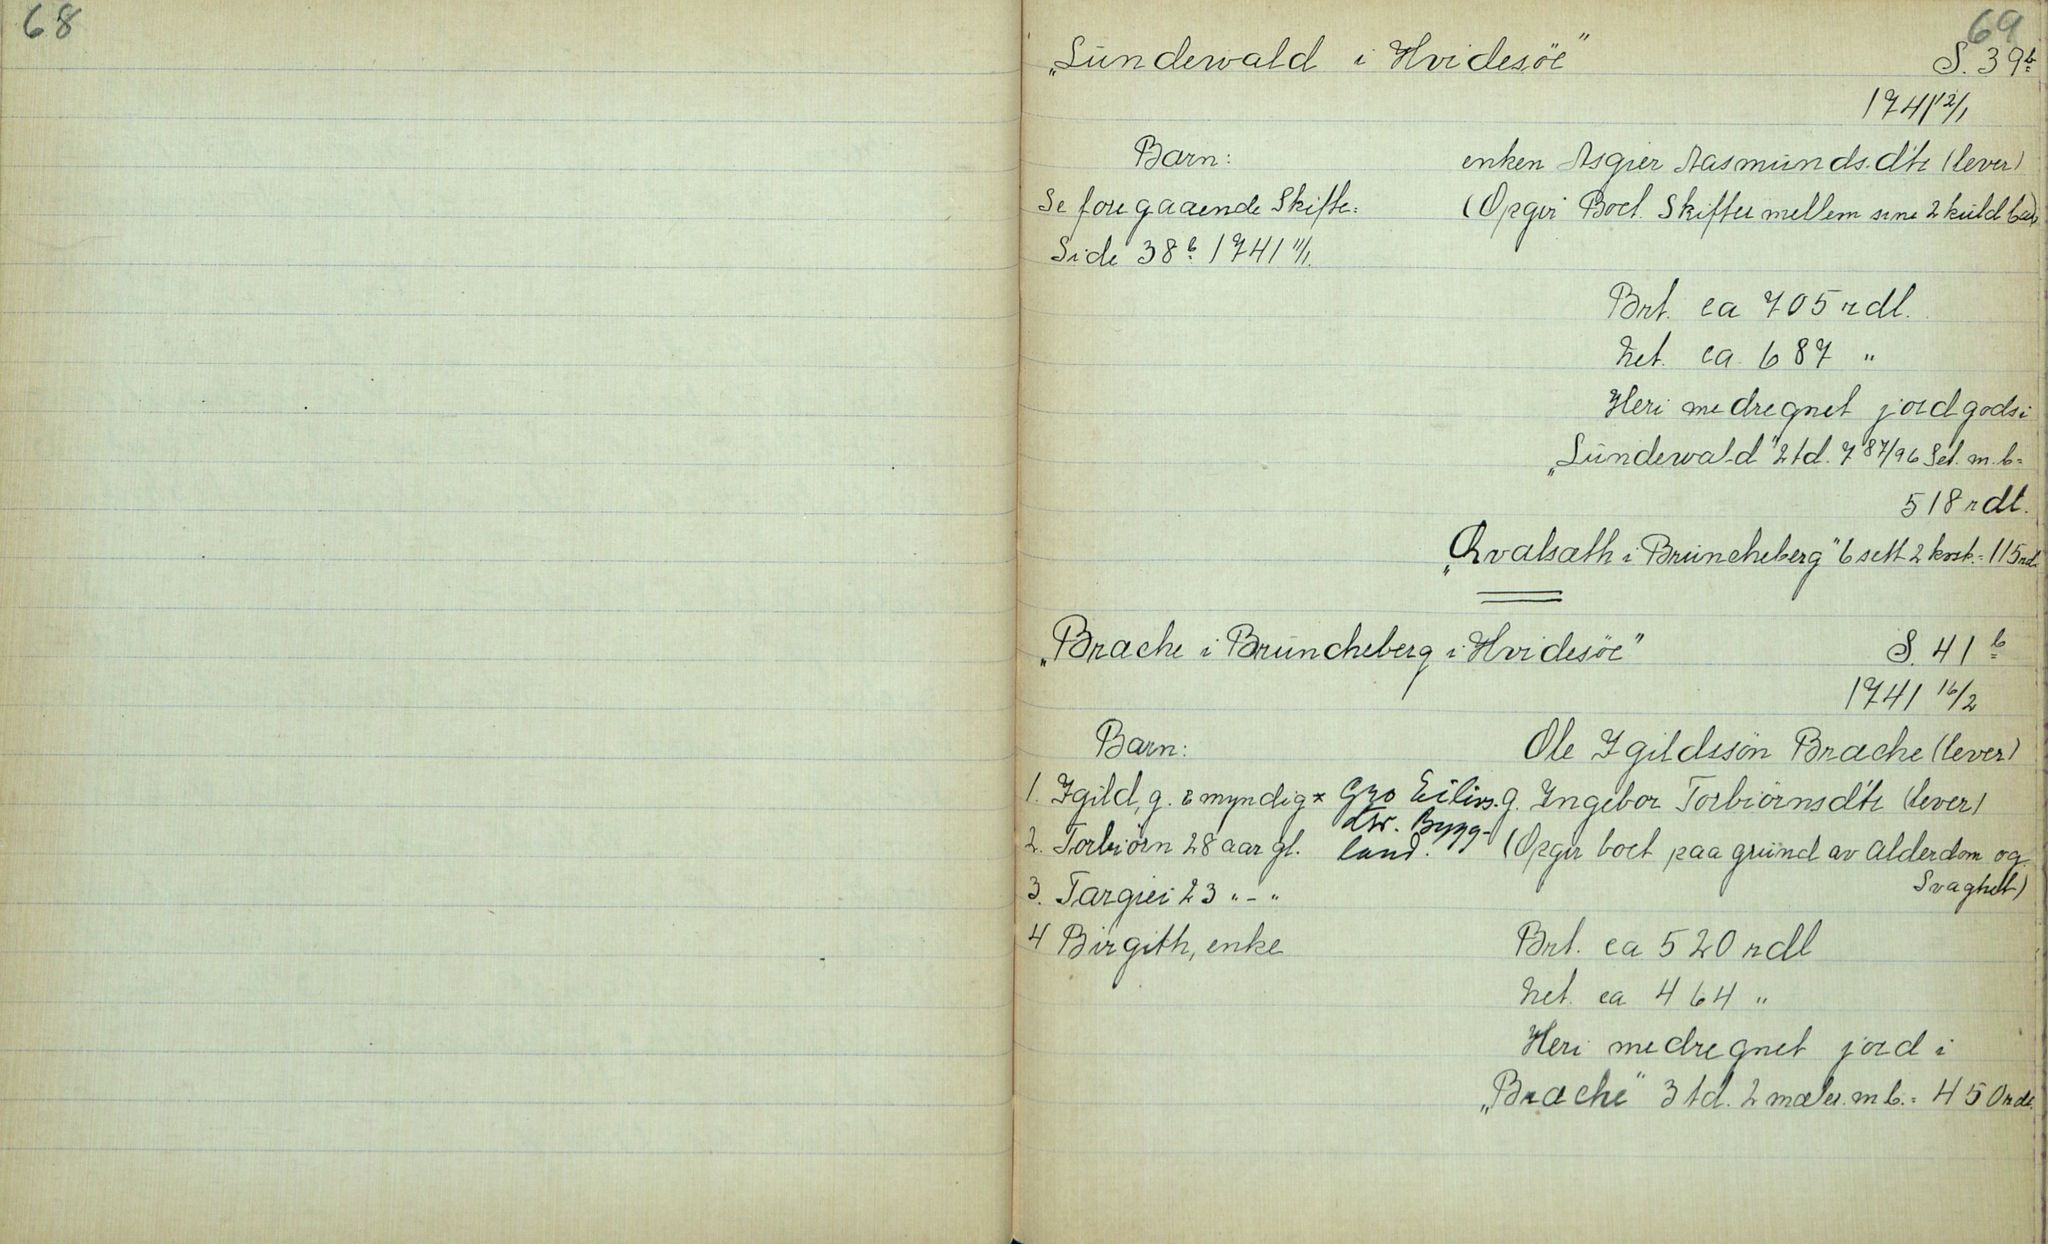 68
69
„Lundewald i Hvidesöe" S. 39b
1741 12/1
Barn: enken Asgier Aasmunds.dtr (lever)
Se foregaaende Skifte: (Opgir Boet. Skiftes mellem sine 2 kuld barn)
Side 38b 1741 11/1.
Brt. ca 705 rdl.
Net. ca 687 "
Heri medregnet jordgods i
„Lundewald" 2 td. 7 87/96 Set. m.b =
518 rdl.
„Qvalsæth i Bruncheberg" 6 sett 2 kark. = 115 rd.
„Brache i Bruncheberg i Hvidesöe" S. 41b
1741 16/2
Barn: Ole Igildssön Brache (lever)
1. Igild, g. & myndig × Gro Eilivs. g. Ingebor Torbiörnsdtr (lever)
dtr. Bygg-
2. Torbiörn 28 aar gl. land. (Opgir boet paa grund av Alderdom og
3. Targiei 23 " - " Svaghet)
4 Birgith, enke Brt. ca 520 rdl
Net. ca 464 "
Heri medregnet jord i
„Brache" 3 td. 2 mæler. m b. = 450 rdl.